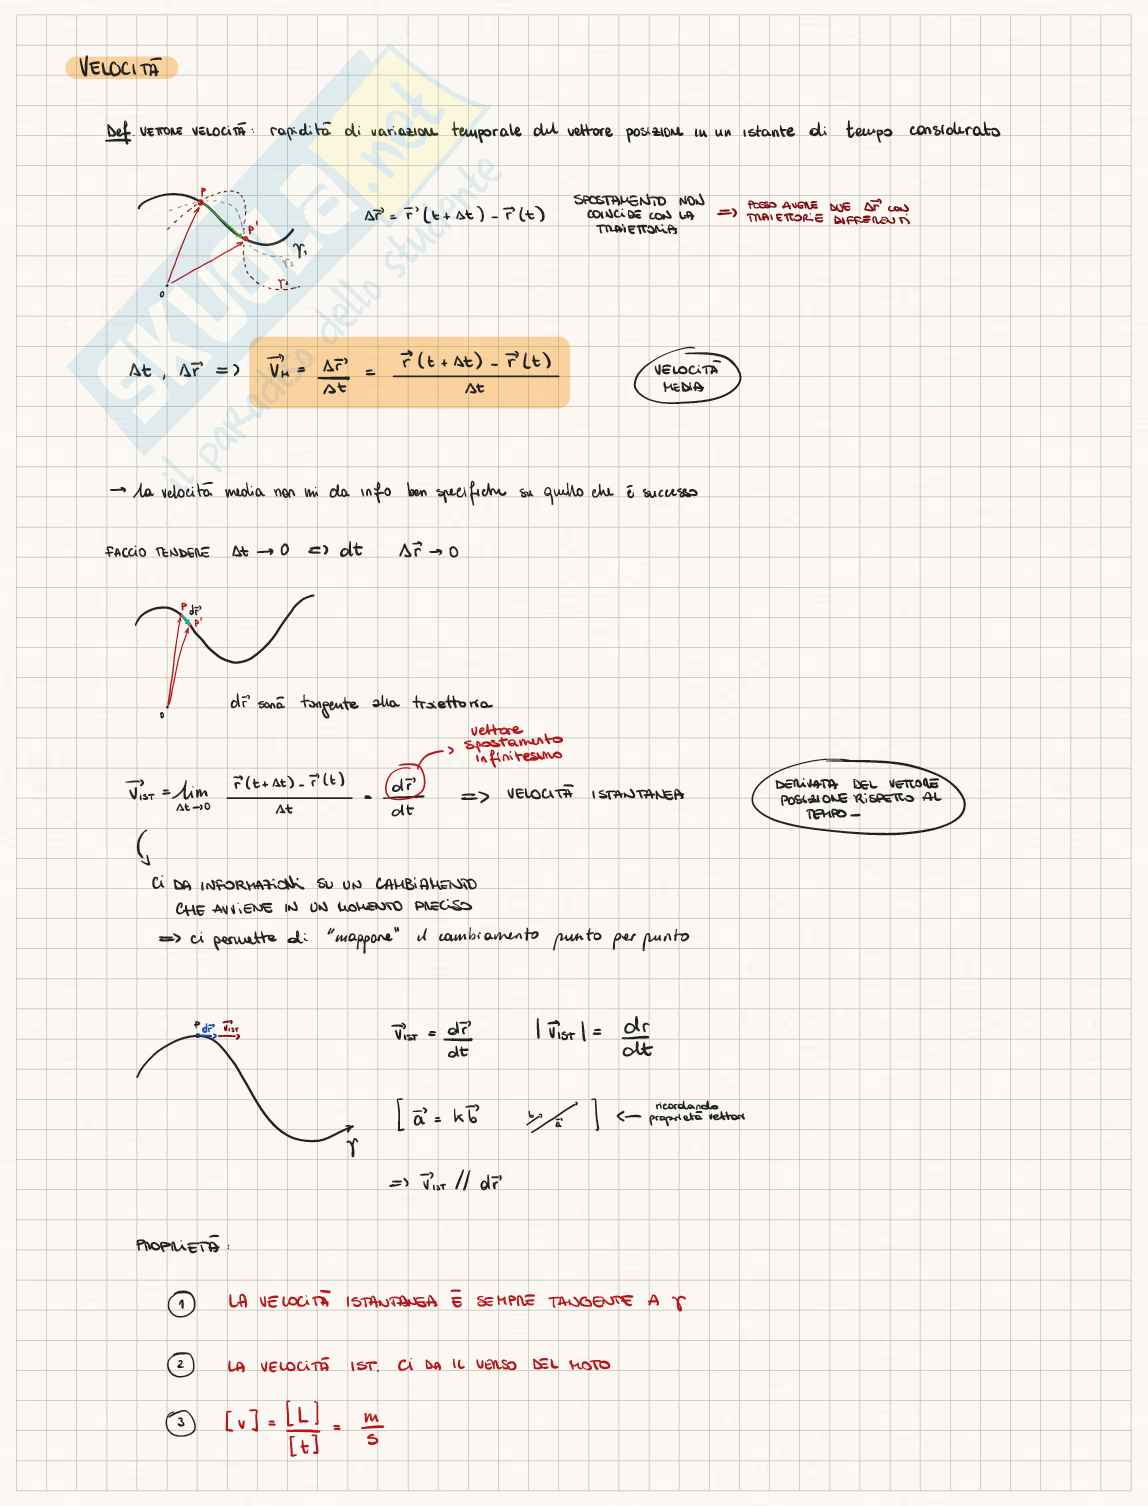 VELOCITÀ
Def VETTORE VELOCITÀ: rapidità di variazione temporale del vettore posizione in un istante di tempo considerato
P
P'
γ₁
γ₂
O
Δr⃗ = r⃗(t+Δt) - r⃗(t)
SPOSTAMENTO NON COINCIDE CON LA TRAIETTORIA
=> POSSO AVERE DUE Δr⃗ CON TRAIETTORIE DIFFERENTI
Δt, Δr⃗ => v⃗_M = Δr⃗/Δt = (r⃗(t+Δt) - r⃗(t))/Δt
VELOCITÀ MEDIA
→ la velocità media non mi da info ben specifiche su quello che è successo
FACCIO TENDERE Δt → 0 => dt Δr⃗ → 0
P dr⃗
P'
O
dr⃗ sarà tangente alla traiettoria
vettore
spostamento
infinitesimo
v⃗_IST = lim_{Δt→0} (r⃗(t+Δt) - r⃗(t))/Δt = dr⃗/dt => VELOCITÀ ISTANTANEA
DERIVATA DEL VETTORE
POSIZIONE RISPETTO AL
TEMPO
CI DA INFORMAZIONI SU UN CAMBIAMENTO
CHE AVVIENE IN UN MOMENTO PRECISO
=> ci permette di "mappare" il cambiamento punto per punto
P dr⃗ v⃗_IST
γ
v⃗_IST = dr⃗/dt |v⃗_IST| = dr/dt
[a⃗ = k b⃗ b⃗ a⃗] ← ricordando proprietà vettori
=> v⃗_IST // dr⃗
PROPRIETÀ:
1 LA VELOCITÀ ISTANTANEA È SEMPRE TANGENTE A γ
2 LA VELOCITÀ IST. CI DA IL VERSO DEL MOTO
3 [v] = [L]/[t] = m/s
SKUOLA.net
il paradiso dello studente